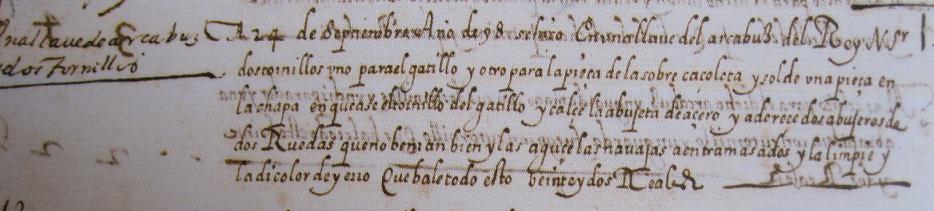 una llave de arcabuz
dos tornillos
A 24 de Septiembre Año de 98 se hizo En una llave del arcabuz del Rey Nr Sr
dos tornillos uno para el gatillo y otro para la pieça de la sobre cacoleta y solde una pieça en
la chapa en que ase el tornillo del gatillo y calce la abujeta de açero y aderece dos abujeros de
dos Ruedas que no benian bien y las aguce las nauajas a entramasados y la limpie y
la di color de yerro Que bale todo esto veinte y dos Reales